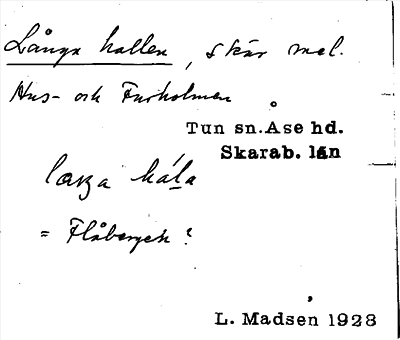 Långa hallen, skär mel.
Hus- och Furholmen
Tun sn. Åse hd.
Skarab. län
laŋa hála
= Flåbergen ?
L. Madsen 1928